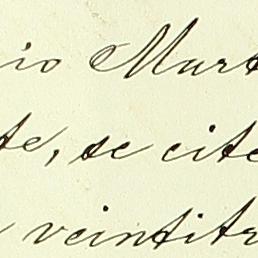 io Mart
te, se cite
veintitr